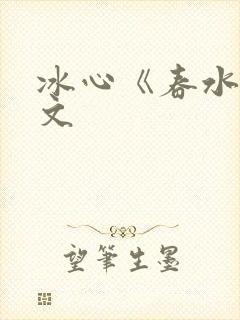 冰心《春水
文
望筆生墨